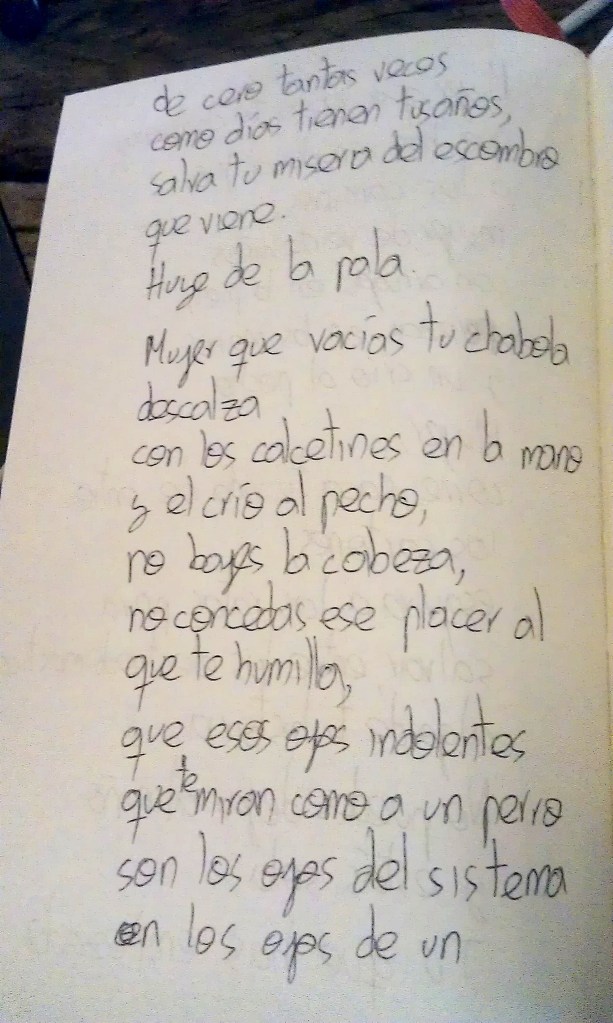 de cero tantas veces
como días tienen tus años,
salva tu misera del escombro
que viene.
Huye de la pala.
Mujer que vacías tu chabola
descalza
con los calcetines en la mano
y el crío al pecho,
no bajes la cabeza,
no concedas ese placer al
que te humilla,
que esos ojos indolentes
que te miran como a un perro
son los ojos del sistema
en los ojos de un